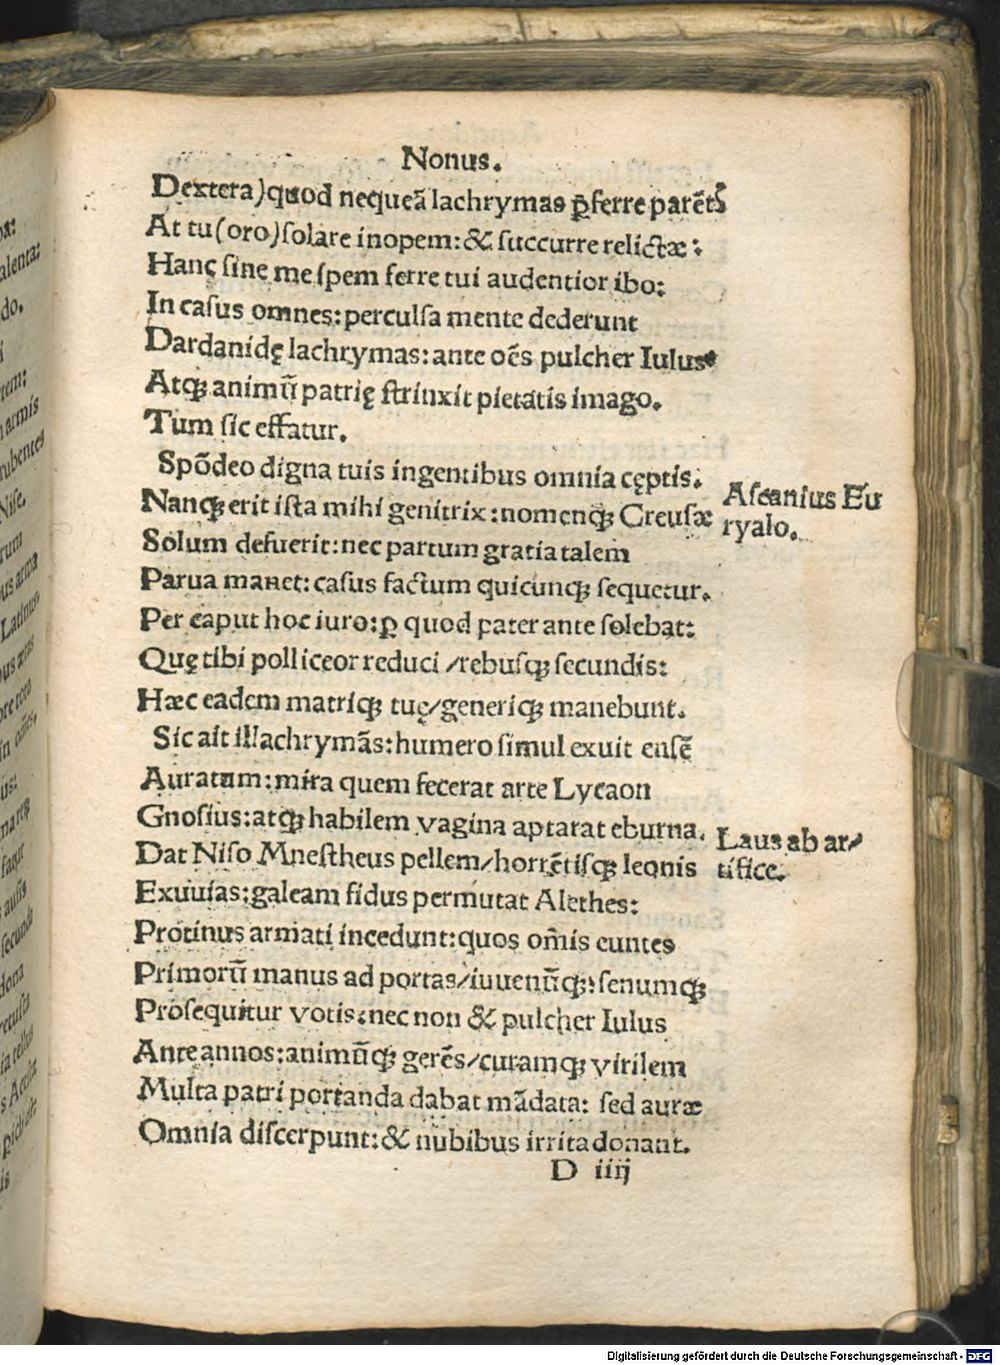 Nonus.
Dextera)quod nequeã lachrymas ꝑferre parẽtꝭ
At tu(oro)ſolare inopem:& ſuccurre relictæ:
Hanc ſine me ſpem ferre tui audentior ibo:
In caſus omnes:perculſa mente dederunt
Dardanidę lachrymas:ante oẽs pulcher Iulus
Atqꝫ animũ patrię ſtrinxit pietatis imago.
Tum ſic effatur.
Spõdeo digna tuis ingentibus omnia cęptis.
Nanqꝫ erit iſta mihi genitrix:nomenqꝫ Creuſæ
Aſcanius Eu
ryalo.
Solum defuerit:nec partum gratia talem
Parua manet:caſus factum quicunqꝫ ſequetur.
Per caput hoc iuro:ꝑ quod pater ante ſolebat:
Quę tibi polliceor reduci /rebuſqꝫ ſecundis:
Hæc eadem matriqꝫ tuę/generiqꝫ manebunt.
Sic ait illachrymãs:humero ſimul exuit enſẽ
Auratum:mira quem fecerat arte Lycaon
Gnoſius:atqꝫ habilem vagina aptarat eburna.
Laus ab ar/
tifice.
Dat Niſo Mneſtheus pellem/horrẽtiſqꝫ leonis
Exuuias:galeam fidus permutat Alethes:
Protinus armati incedunt:quos om̃is euntes
Primorũ manus ad portas/iuuenũqꝫ:ſenumqꝫ
Proſequitur votis:nec non & pulcher Iulus
Ante annos:animũqꝫ gerẽs/curamqꝫ virilem
Multa patri portanda dabat mãdata: ſed auræ
Omnia diſcerpunt:& nubibus irrita donant.
D iiij
Digitalisierung gefördert durch die Deutsche Forschungsgemeinschaft - DFG